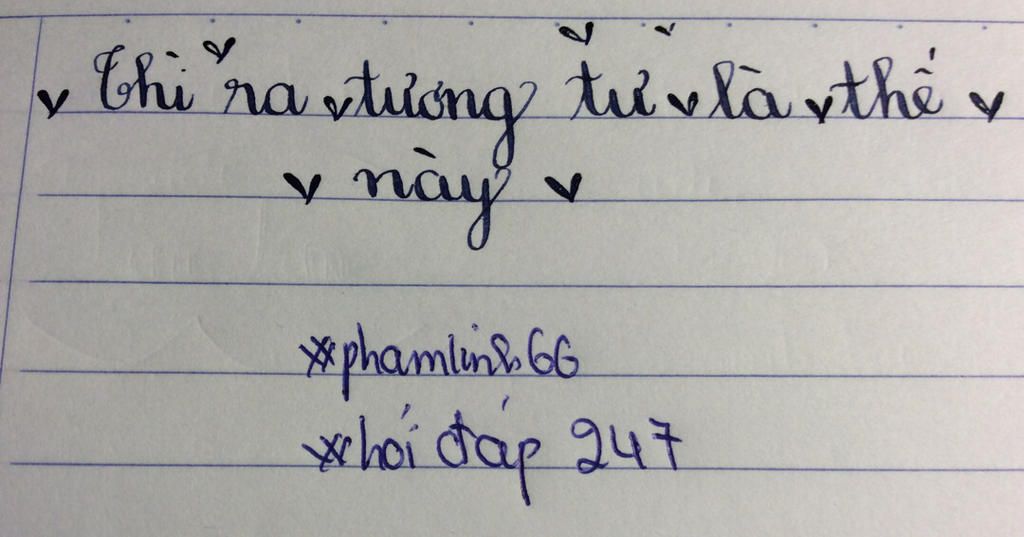 Thì ra tương tư là thế
này
#phamlinh66
#hỏi đáp 247